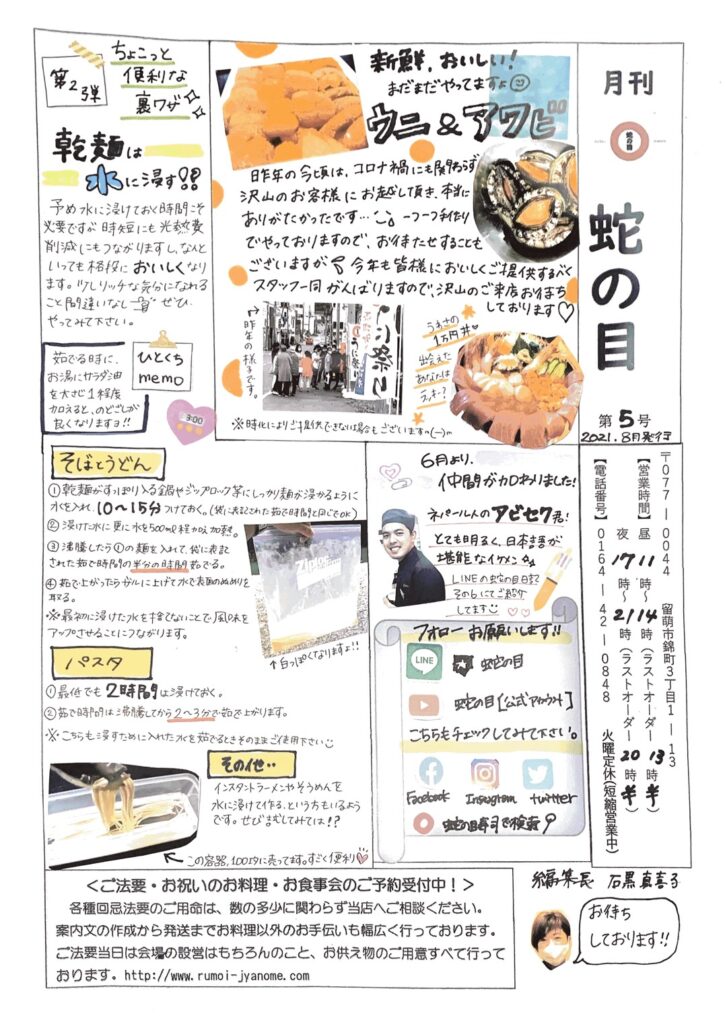 月刊
蛇の目
蛇の目
第5号
2021.8月発行
新鮮、おいしい!
まだまだやってますよ
ウニ&アワビ
昨年の今頃は、コロナ禍にも関わらず
沢山のお客様にお越し頂き、本当に
ありがたかったです…一つ一つ手作り
でやっておりますので、お待たせすることも
ございますが今年も皆様においしくご提供するべく
スタッフ一同がんばりますので、沢山のご来店お待ち
しております♡
昨年の様子です。
うに祭り
うわさの
1万円丼
出会えた
あなたは
ラッキー?
※時化によりご提供できない場合もございますm(__)m
第2弾
ちょこっと
便利な
裏ワザ
乾麺は
水に浸す!?
予め水に浸けておく時間こそ
必要ですが時短にも光熱費
削減にもつながりますし、なんと
いっても格段においしくなり
ます。少しリッチな気分になれる
こと間違いなし ぜひ
やってみて下さい。
茹でる時に、
お湯にサラダ油
を大さじ1程度
加えると、のどごしが
良くなりますョ!!
ひとくち
memo
3:00
そばとうどん
①乾麺がすっぽり入る鍋やジップロック等にしっかり麺が浸かるように
水を入れ、10〜15分つけておく。(袋に表記された茹で時間と同じでOK)
②浸けた水に更に水を500ml程加え加熱。
③沸騰したら①の麺を入れて、袋に表記
された茹で時間の半分の時間茹でる。
④茹で上がったらザルに上げて水で表面のぬめりを
取る。
※最初に浸けた水を捨てないことで、風味を
アップさせることにつながります。
Ziploc
↑白っぽくなりますよ!!
パスタ
①最低でも2時間は浸けておく。
②茹で時間は沸騰してから2〜3分で茹で上がります。
※こちらも浸すために入れた水を茹でるときそのままご使用下さい
その他‥
インスタントラーメンやそうめんを
水に浸けて作る、という方もいるよう
です。ぜひ試してみては!?
← この容器、100均に売ってます。すごく便利♡
6月より、
仲間が加わりました!
ネパール人のアビセク君!
とても明るく、日本語が
堪能なイケメン
LINEの蛇の目日記
その6にてご紹介
してます
フォローお願いします!!
LINE
蛇の目
蛇の目[公式アカウント]
こちらもチェックしてみて下さい。
Facebook
Instagram
twitter
蛇の目寿司で検索
〒077-0044 留萌市錦町3丁目1-13
【営業時間】昼 11時〜14時(ラストオーダー 13時半)
夜 17時〜21時(ラストオーダー 20時半)
【電話番号】0164-42-0848 火曜定休(短縮営業中)
<ご法要・お祝いのお料理・お食事会のご予約受付中!>
各種回忌法要のご用命は、数の多少に関わらず当店へご相談ください。
案内文の作成から発送までお料理以外のお手伝いも幅広く行っております。
ご法要当日は会場の設営はもちろんのこと、お供え物のご用意すべて行って
おります。http://www.rumoi-jyanome.com
編集長 石黒真喜子
お待ち
しております!!